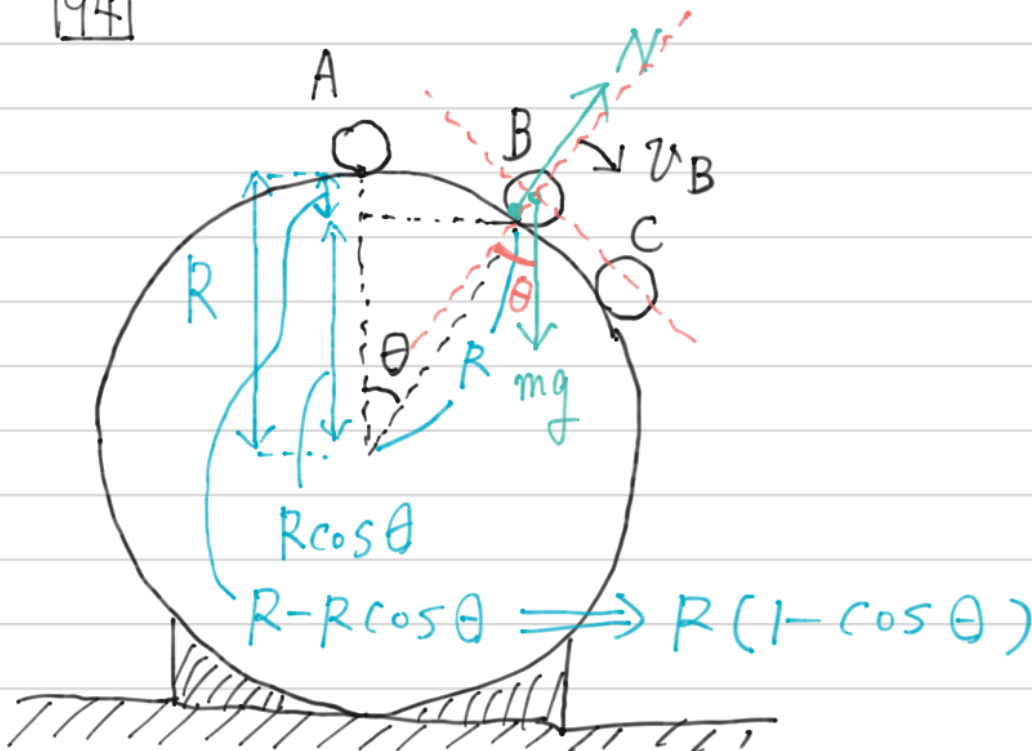 94
A
N
B
v_B
C
R
θ
θ
R
mg
Rcosθ
R-Rcosθ ⟹ R(1-cosθ)